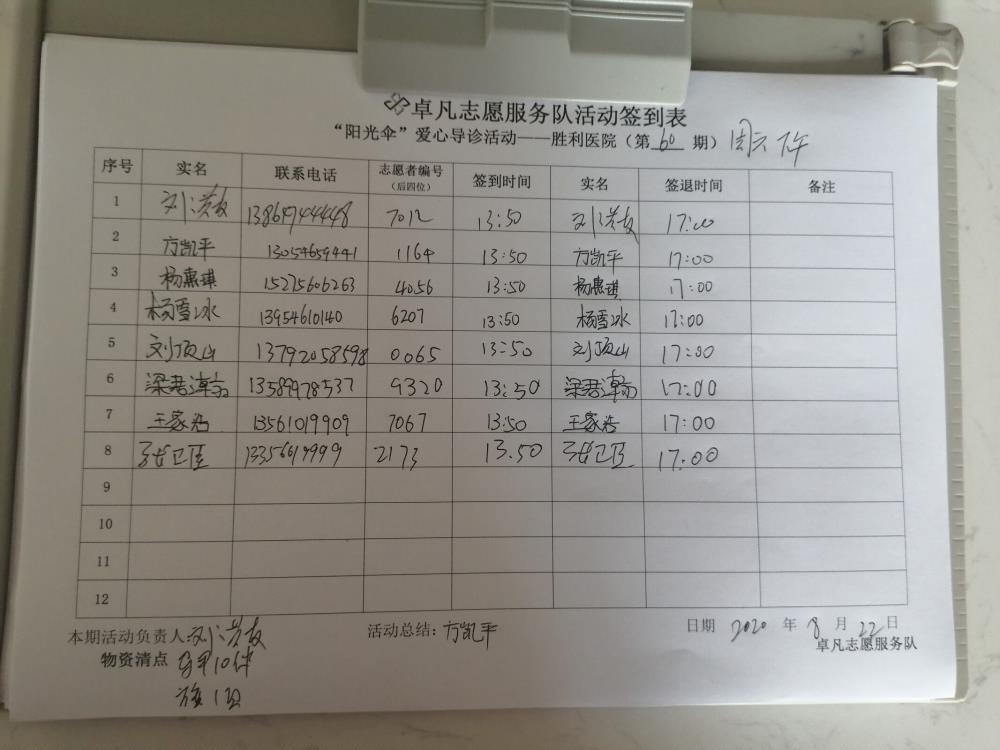 卓凡志愿服务队活动签到表
“阳光伞”爱心导诊活动——胜利医院（第 60 期）周六下午
序号 实名 联系电话 志愿者编号（后四位） 签到时间 实名 签退时间 备注
1 刘洪友 13864944448 7012 13:50 刘洪友 17:00
2 方凯平 13054659441 1164 13:50 方凯平 17:00
3 杨惠琪 15275606263 4056 13:50 杨惠琪 17:00
4 杨雪冰 13954610140 6207 13:50 杨雪冰 17:00
5 刘顶山 13792058598 0065 13:50 刘顶山 17:00
6 梁君 13589978537 9320 13:50 梁君 17:00
7 王家浩 13561019909 7067 13:50 王家浩 17:00
8 张卫臣 13356619999 2173 13.50 张卫臣 17:00
9
10
11
12
本期活动负责人:刘洪友 活动总结:方凯平 日期 2020 年 8 月 22 日
物资清点 马甲10件 卓凡志愿服务队
旗1面